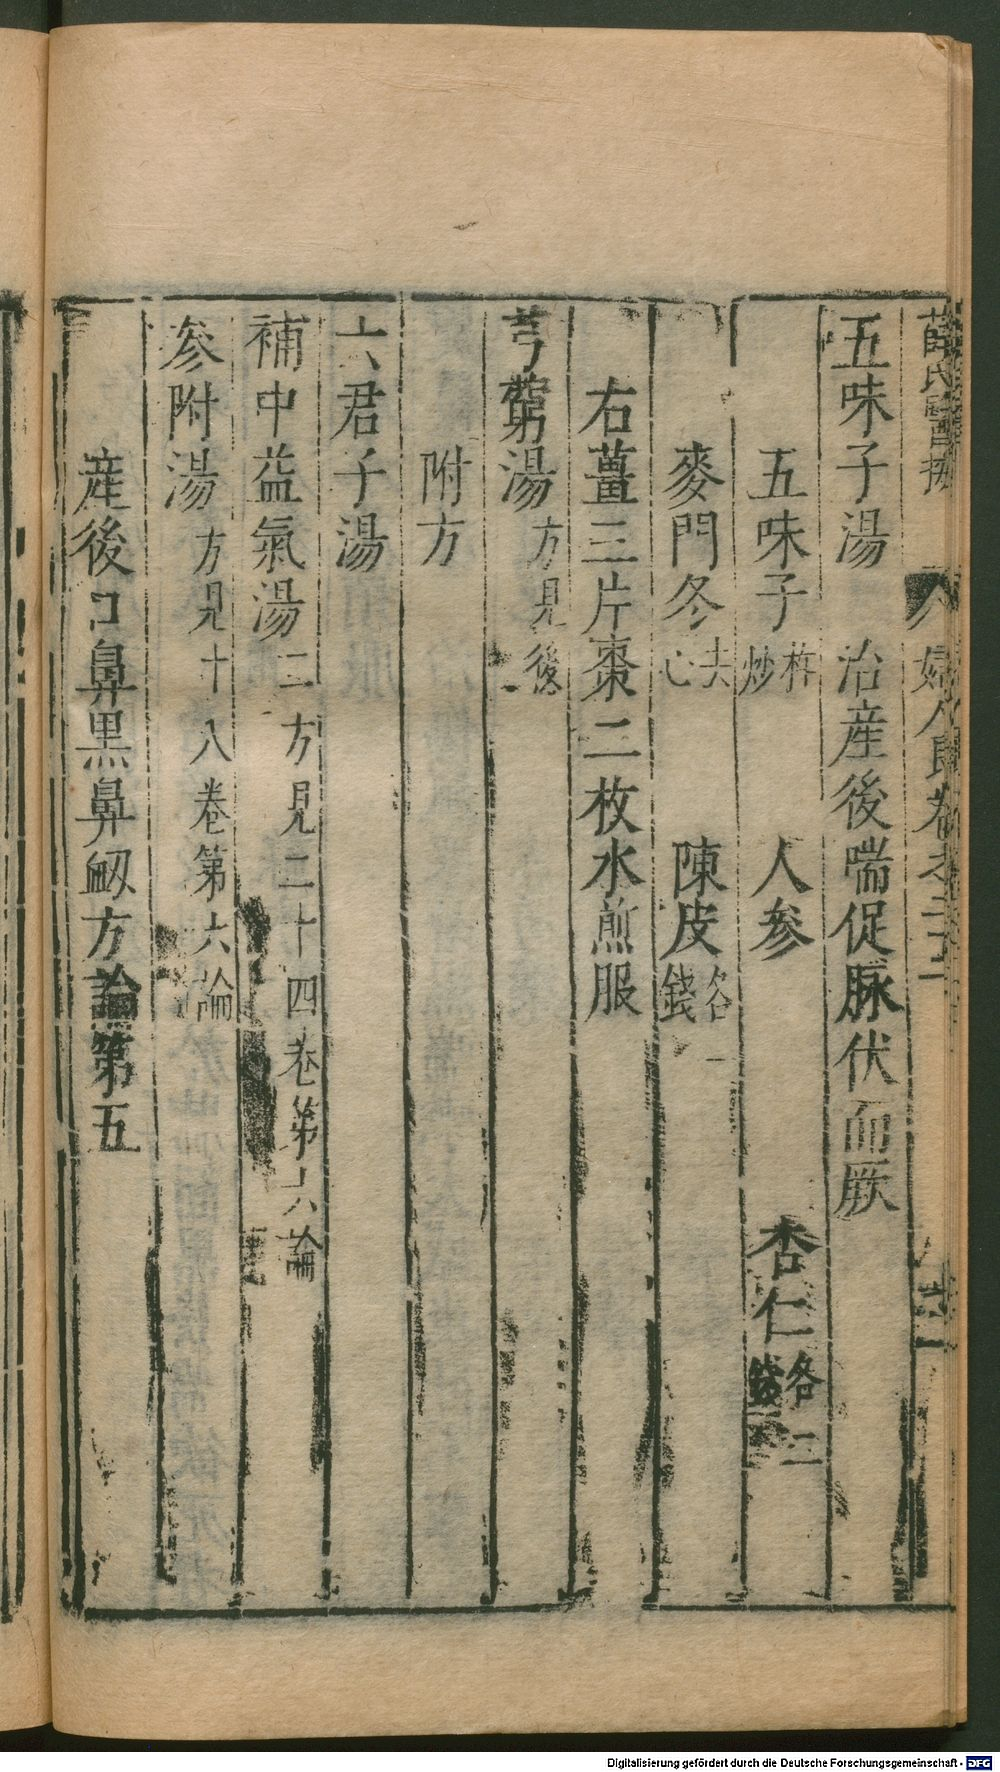 薛氏醫按 婦人良卷之二十二
五味子湯 治産後喘促脉伏而厥
五味子杵炒 人參 杏仁各二錢
麥門冬去心 陳皮各一錢
右薑三片棗二枚水煎服
芎藭湯方見後
附方
六君子湯
補中益氣湯二方見二十四卷第六論
參附湯方見十八卷第六論
産後口鼻黑鼻衂方論第五
Digitalisierung gefördert durch die Deutsche Forschungsgemeinschaft - DFG